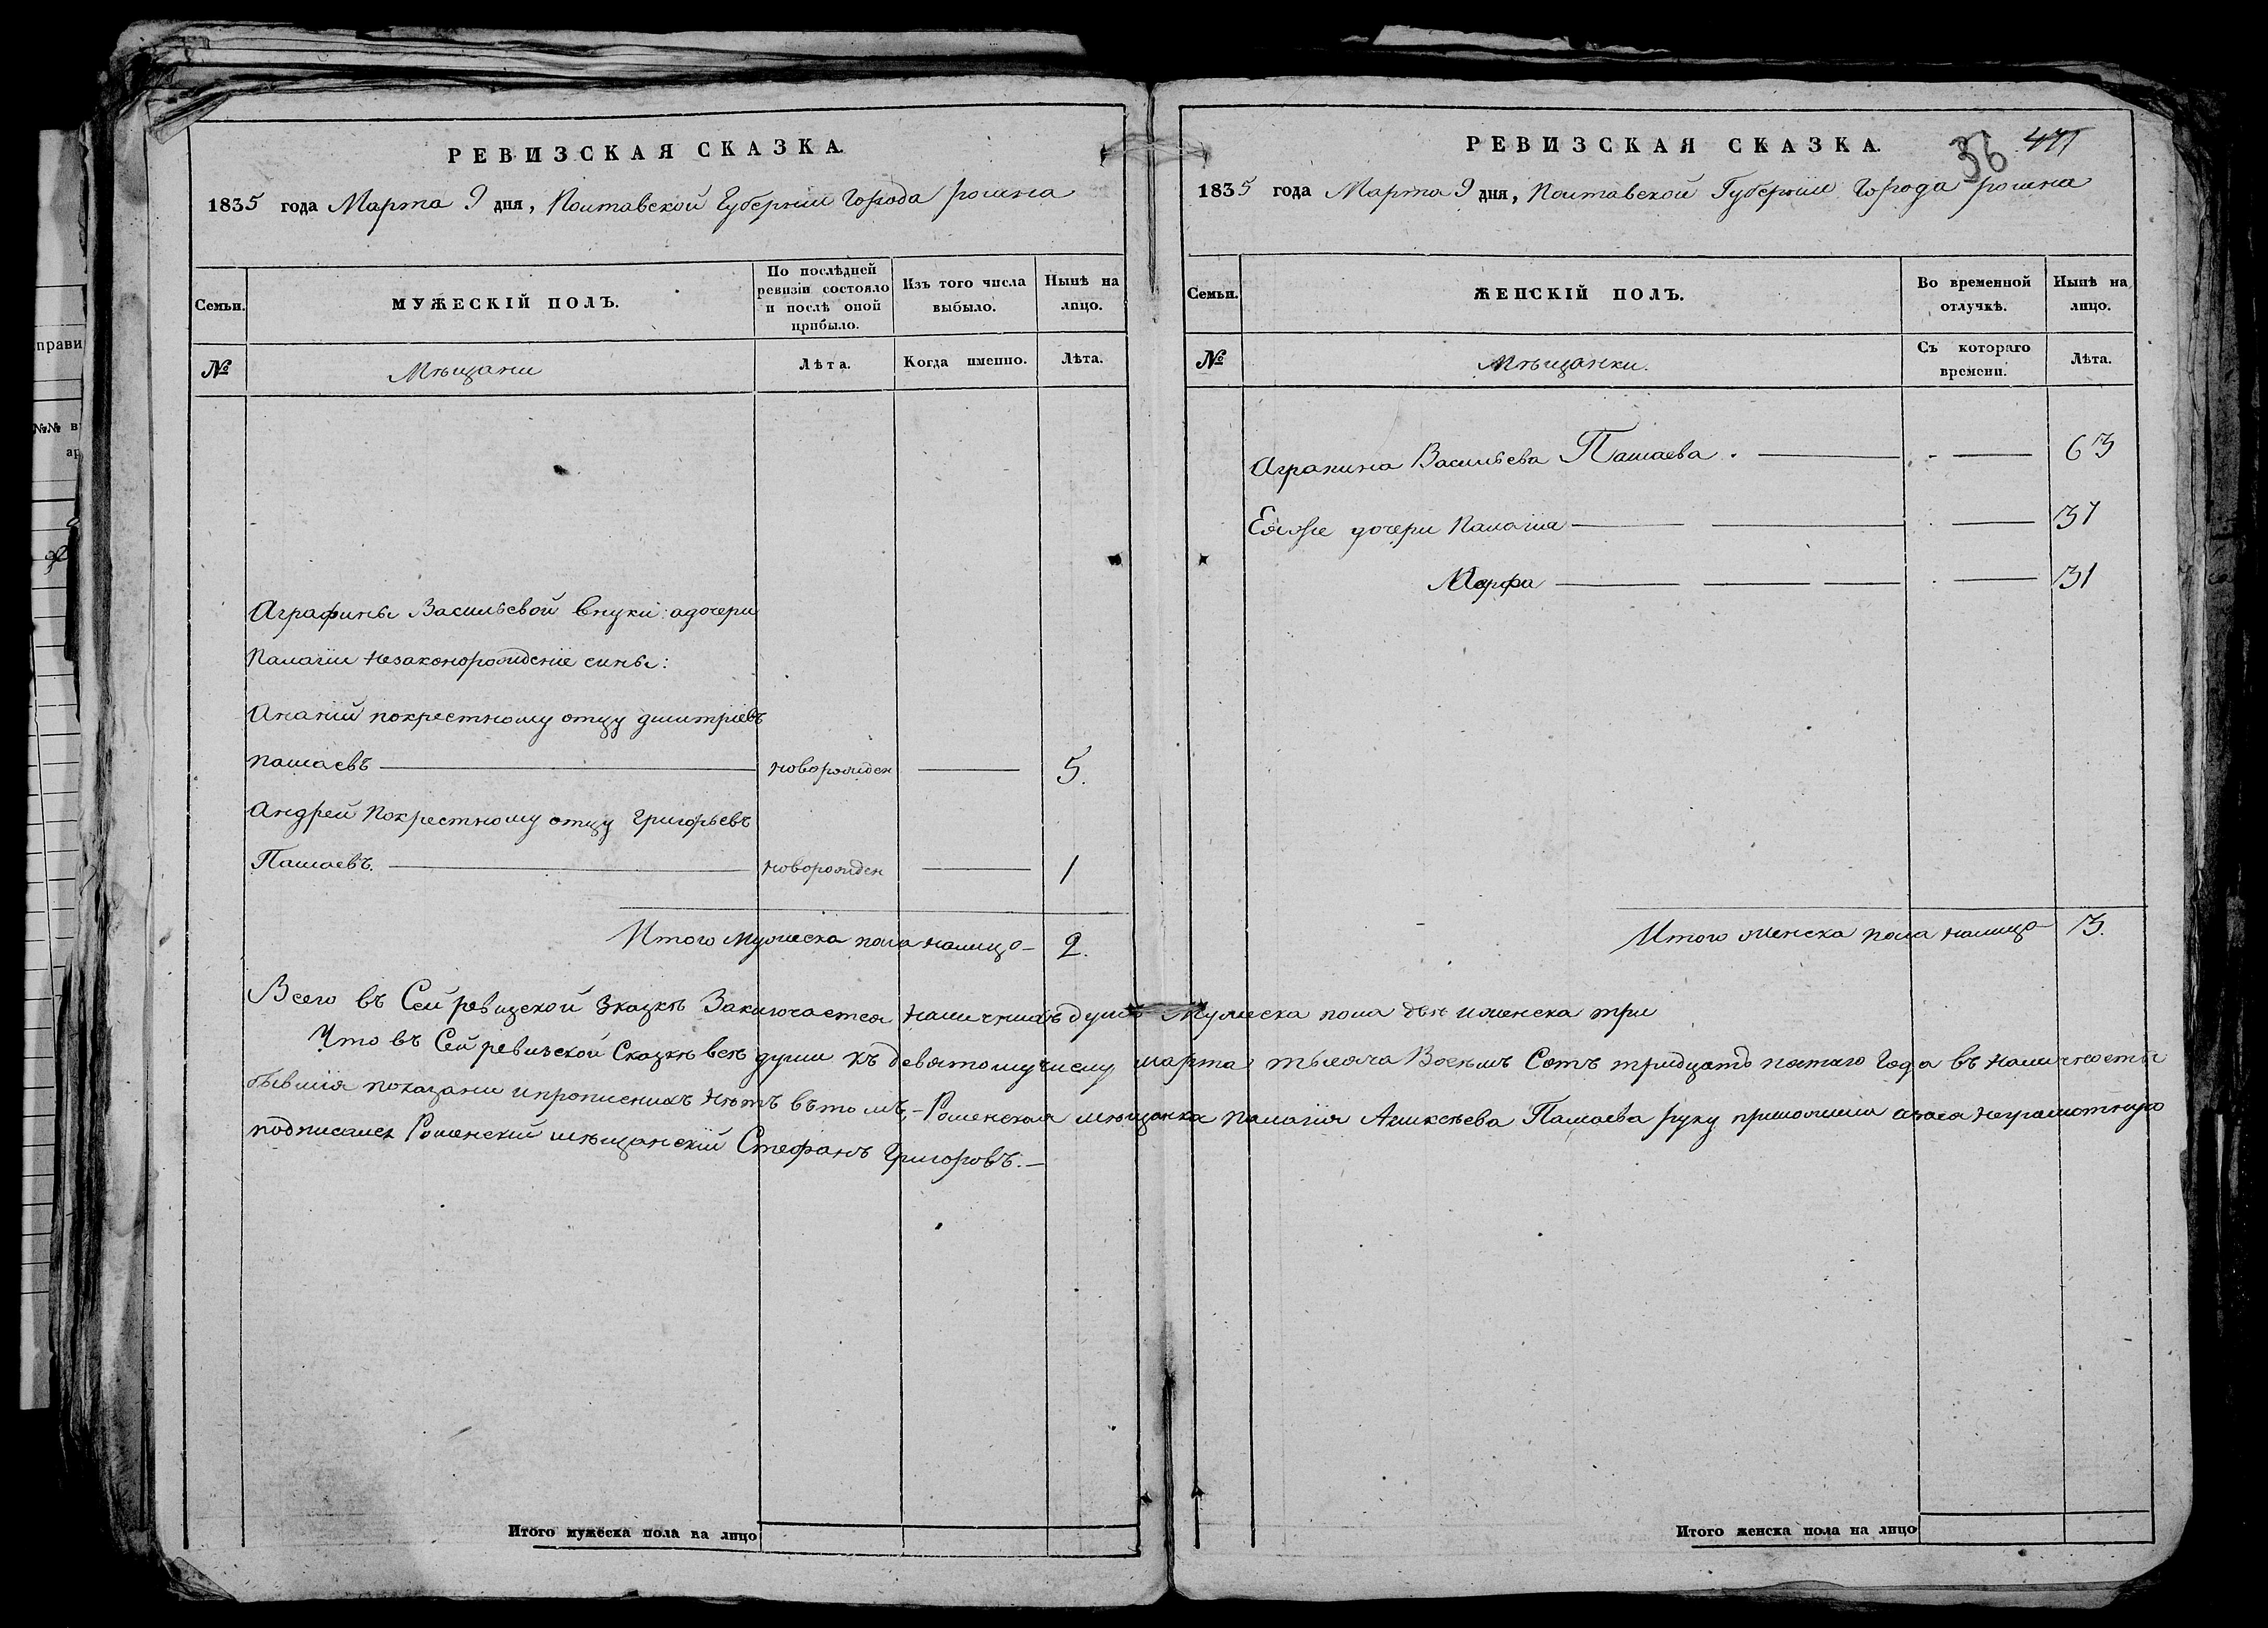 РЕВИЗСКАЯ СКАЗКА.
1835 года Марта 9 дня, Полтавской Губернии Города ромна
Семьи.
МУЖЕСКІЙ ПОЛЪ.
По послѣдней ревизіи состояло и послѣ оной прибыло.
Изъ того числа выбыло.
Нынѣ на лицо.
№
Мѣщани
Лѣта.
Когда именно.
Лѣта.
Аграфины Васильевой внуки адочери
Палагии незаконорожденіе сины:
Ананій покрестному отцу дмитріевъ
пашаевъ новорожден 5.
Андрей покрестному отцу григорьевъ
Пашаевъ. новорожден 1
Итого мужеска пола налицо 2.
РЕВИЗСКАЯ СКАЗКА.
36 471
1835 года Марта 9 дня, Полтавской Губернии Города ромна
Семьи.
ЖЕНСКІЙ ПОЛЪ.
Во временной отлучкѣ.
Нынѣ на лицо.
№
Мѣщанки.
Съ котораго времени.
Лѣта.
Аграпина Васильева Пашаева 63
Еяже дочери Палагия 37
Марфа 31
Итого женска пола налицо 3.
Всего въ Сей ревизской зказкѣ Заключается наличнихъ душъ Мужеска пола двѣ иженска три
Что въ Сей ревизской Сказкѣ всѣ души къ девятомучислу марта тысяча Восѣмь Сотъ тридцать пятаго Года въ наличности
бывшія показани ипрописнихъ нѣтъ вътомъ, Роменская мѣщанка палагия Аликсѣева Пашаева руку приложила азанея неграмотную
подписался Роменский мѣщанскій Стефанъ Григоровъ.
Итого мужеска пола на лицо
Итого женска пола на лицо